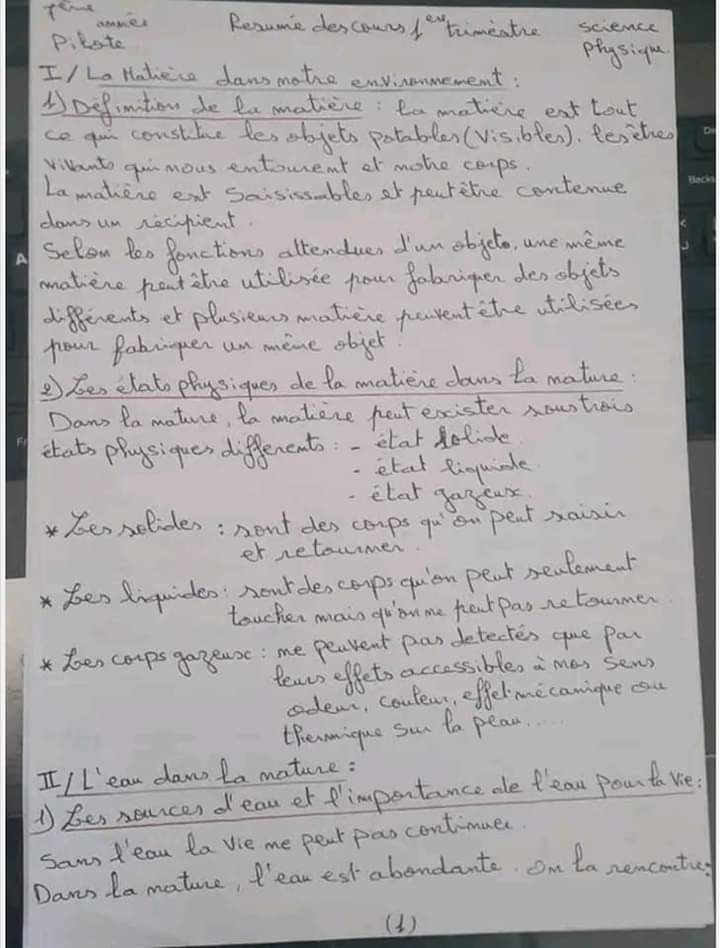 7ème année Pilote
Resumé des cours 1er trimèstre
science physique.
I/ La Matière dans notre environnement :
1) Définition de la matière : la matière est tout
ce qui constitue les objets potables (Visibles). les êtres
vivants qui nous entourent et notre corps.
La matière est saisissables et peut être contenue
dans un récipient.
Selon les fonctions attendues d'un objets, une même
matière peut être utilisée pour fabriquer des objets
différents et plusieurs matière peuvent être utilisées
pour fabriquer un même objet.
2) Les états physiques de la matière dans la nature :
Dans la nature, la matière peut exister sous trois
états physiques differents : - état solide.
- état liquide.
- état gazeux.
* Les solides : sont des corps qu'on peut saisir
et retourner.
* Les liquides : sont des corps qu'on peut seulement
toucher mais qu'on ne peut pas retourner.
* Les corps gazeux : ne peuvent pas detectés que par
leurs effets accessibles à nos sens
odeur, couleur, effet mécanique ou
thermique sur la peau.....
II/ L'eau dans la nature :
1) Les sources d'eau et l'importance de l'eau pour la vie :
Sans l'eau la vie ne peut pas continuer.
Dans la nature, l'eau est abondante. On la rencontre :
(1)